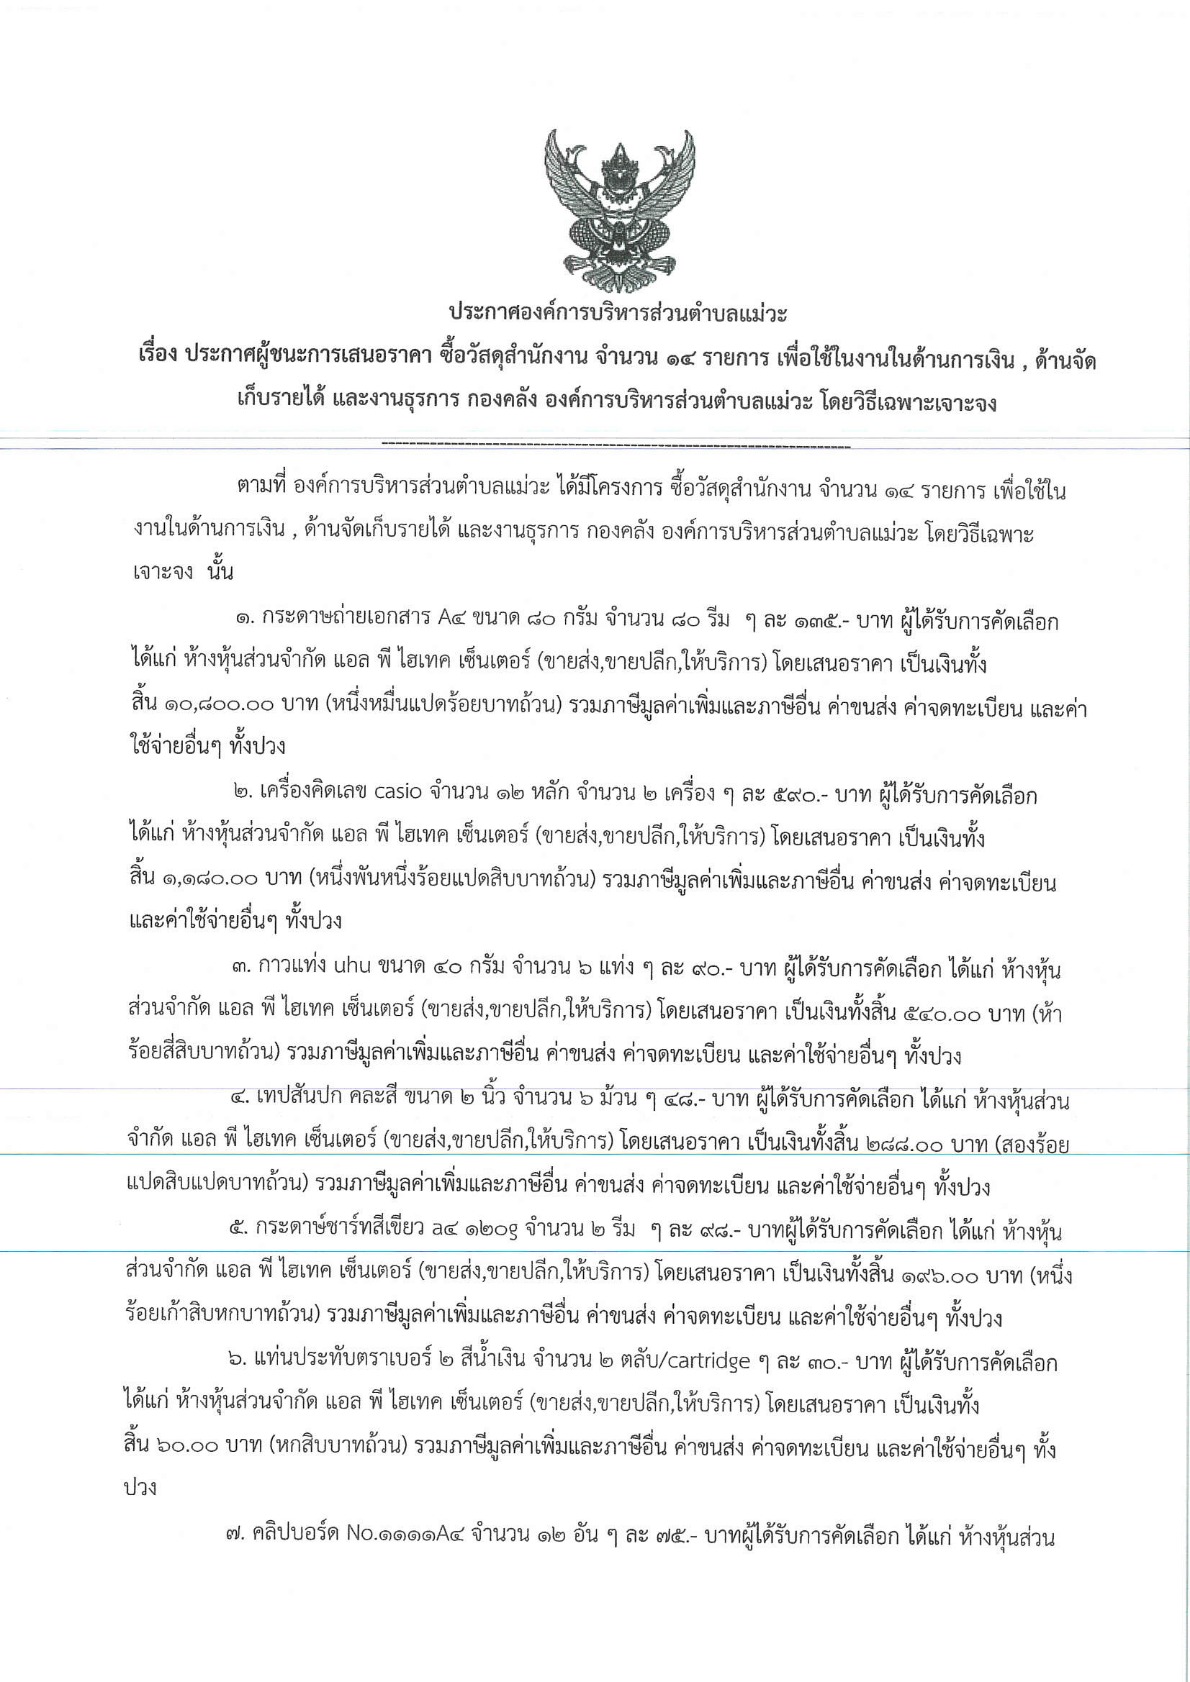 ประกาศองค์การบริหารส่วนตำบลแม่วะ
เรื่อง ประกาศผู้ชนะการเสนอราคา ซื้อวัสดุสำนักงาน จำนวน ๑๔ รายการ เพื่อใช้ในงานในด้านการเงิน , ด้านจัด
เก็บรายได้ และงานธุรการ กองคลัง องค์การบริหารส่วนตำบลแม่วะ โดยวิธีเฉพาะเจาะจง
--------------------------------------------------------------------
ตามที่ องค์การบริหารส่วนตำบลแม่วะ ได้มีโครงการ ซื้อวัสดุสำนักงาน จำนวน ๑๔ รายการ เพื่อใช้ใน
งานในด้านการเงิน , ด้านจัดเก็บรายได้ และงานธุรการ กองคลัง องค์การบริหารส่วนตำบลแม่วะ โดยวิธีเฉพาะ
เจาะจง นั้น
๑. กระดาษถ่ายเอกสาร A๔ ขนาด ๘๐ กรัม จำนวน ๘๐ รีม ๆ ละ ๑๓๕.- บาท ผู้ได้รับการคัดเลือก
ได้แก่ ห้างหุ้นส่วนจำกัด แอล พี ไฮเทค เซ็นเตอร์ (ขายส่ง,ขายปลีก,ให้บริการ) โดยเสนอราคา เป็นเงินทั้ง
สิ้น ๑๐,๘๐๐.๐๐ บาท (หนึ่งหมื่นแปดร้อยบาทถ้วน) รวมภาษีมูลค่าเพิ่มและภาษีอื่น ค่าขนส่ง ค่าจดทะเบียน และค่า
ใช้จ่ายอื่นๆ ทั้งปวง
๒. เครื่องคิดเลข casio จำนวน ๑๒ หลัก จำนวน ๒ เครื่อง ๆ ละ ๕๙๐.- บาท ผู้ได้รับการคัดเลือก
ได้แก่ ห้างหุ้นส่วนจำกัด แอล พี ไฮเทค เซ็นเตอร์ (ขายส่ง,ขายปลีก,ให้บริการ) โดยเสนอราคา เป็นเงินทั้ง
สิ้น ๑,๑๘๐.๐๐ บาท (หนึ่งพันหนึ่งร้อยแปดสิบบาทถ้วน) รวมภาษีมูลค่าเพิ่มและภาษีอื่น ค่าขนส่ง ค่าจดทะเบียน
และค่าใช้จ่ายอื่นๆ ทั้งปวง
๓. กาวแท่ง uhu ขนาด ๔๐ กรัม จำนวน ๖ แท่ง ๆ ละ ๙๐.- บาท ผู้ได้รับการคัดเลือก ได้แก่ ห้างหุ้น
ส่วนจำกัด แอล พี ไฮเทค เซ็นเตอร์ (ขายส่ง,ขายปลีก,ให้บริการ) โดยเสนอราคา เป็นเงินทั้งสิ้น ๕๔๐.๐๐ บาท (ห้า
ร้อยสี่สิบบาทถ้วน) รวมภาษีมูลค่าเพิ่มและภาษีอื่น ค่าขนส่ง ค่าจดทะเบียน และค่าใช้จ่ายอื่นๆ ทั้งปวง
๔. เทปสันปก คละสี ขนาด ๒ นิ้ว จำนวน ๖ ม้วน ๆ ๔๘.- บาท ผู้ได้รับการคัดเลือก ได้แก่ ห้างหุ้นส่วน
จำกัด แอล พี ไฮเทค เซ็นเตอร์ (ขายส่ง,ขายปลีก,ให้บริการ) โดยเสนอราคา เป็นเงินทั้งสิ้น ๒๘๘.๐๐ บาท (สองร้อย
แปดสิบแปดบาทถ้วน) รวมภาษีมูลค่าเพิ่มและภาษีอื่น ค่าขนส่ง ค่าจดทะเบียน และค่าใช้จ่ายอื่นๆ ทั้งปวง
๕. กระดาษ์ชาร์ทสีเขียว a๔ ๑๒๐g จำนวน ๒ รีม ๆ ละ ๙๘.- บาทผู้ได้รับการคัดเลือก ได้แก่ ห้างหุ้น
ส่วนจำกัด แอล พี ไฮเทค เซ็นเตอร์ (ขายส่ง,ขายปลีก,ให้บริการ) โดยเสนอราคา เป็นเงินทั้งสิ้น ๑๙๖.๐๐ บาท (หนึ่ง
ร้อยเก้าสิบหกบาทถ้วน) รวมภาษีมูลค่าเพิ่มและภาษีอื่น ค่าขนส่ง ค่าจดทะเบียน และค่าใช้จ่ายอื่นๆ ทั้งปวง
๖. แท่นประทับตราเบอร์ ๒ สีน้ำเงิน จำนวน ๒ ตลับ/cartridge ๆ ละ ๓๐.- บาท ผู้ได้รับการคัดเลือก
ได้แก่ ห้างหุ้นส่วนจำกัด แอล พี ไฮเทค เซ็นเตอร์ (ขายส่ง,ขายปลีก,ให้บริการ) โดยเสนอราคา เป็นเงินทั้ง
สิ้น ๖๐.๐๐ บาท (หกสิบบาทถ้วน) รวมภาษีมูลค่าเพิ่มและภาษีอื่น ค่าขนส่ง ค่าจดทะเบียน และค่าใช้จ่ายอื่นๆ ทั้ง
ปวง
๗. คลิปบอร์ด No.๑๑๑๑A๔ จำนวน ๑๒ อัน ๆ ละ ๗๕.- บาทผู้ได้รับการคัดเลือก ได้แก่ ห้างหุ้นส่วน